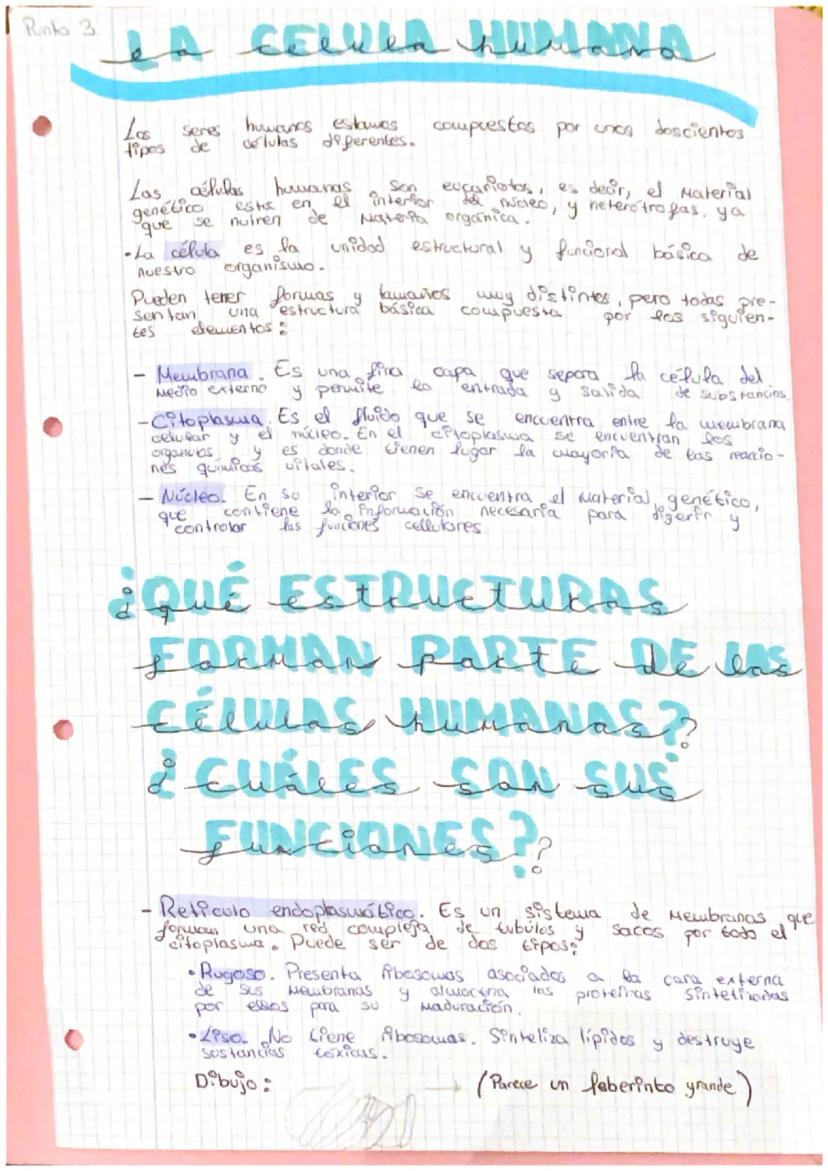 Punto 3
LA CELULA HUMANA
Los seres humanos estamos compuestos por unos doscientos
tipos de células diferentes.
Las células humanas son eucariotas, es decir, el Material
genético está en el interior del núcleo, y heterótrofas, ya
que se nutren de Materia orgánica.
•La célula es la unidad estructural y funcional básica de
nuestro organismo.
Pueden tener formas y tamaños muy distintos, pero todas pre-
sentan una estructura básica compuesta por los siguien-
tes elementos:
- Membrana. Es una fina capa que separa la célula del
Medio externo y permite la entrada y salida de substancias.
-Citoplasma. Es el fluido que se encuentra entre la membrana
celular y el núcleo. En el citoplasma se encuentran los
organulos y es donde tienen lugar la mayoría de las reaccio-
nes químicas vitales.
- Núcleo. En su interior se encuentra el material genético,
que contiene la información necesaria para digerir y
controlar las funciones cellulares
¿QUÉ ESTRUCTURAS
FORMAN PARTE DE LAS
CÉLULAS HUMANAS?
¿CUÁLES SON SUS
FUNCIONES?
- Retículo endoplasmático. Es un sistema de Membranas que
forman una red compleja de túbulos y sacos por todo el
citoplasma. Puede ser de dos tipos:
•Rugoso. Presenta ribosomas asociados a la cara externa
de sus Membranas y almacena las proteínas sintetizadas
por ellos para su maduración.
•Liso. No tiene ribosomas. Sintetiza lípidos y destruye
sustancias tóxicas.
Dibujo: → (Parece un laberinto grande)